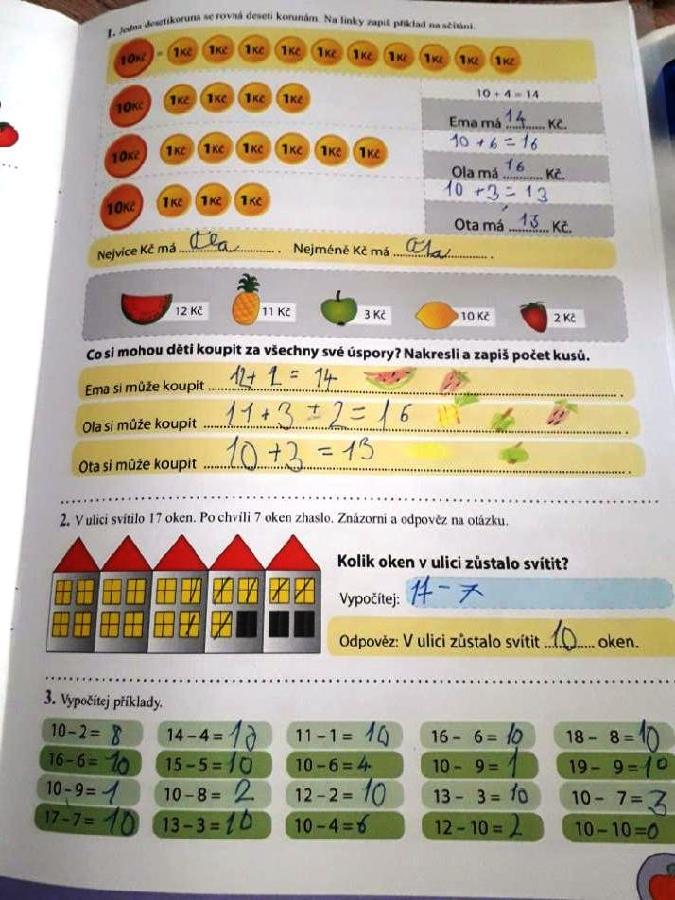 1. Jedna desetikoruna se rovná deseti korunám. Na linky zapiš příklad na sčítání.
10Kč = 1Kč 1Kč 1Kč 1Kč 1Kč 1Kč 1Kč 1Kč 1Kč 1Kč
10Kč 1Kč 1Kč 1Kč 1Kč
10 + 4 = 14
Ema má 14 Kč.
10Kč 1Kč 1Kč 1Kč 1Kč 1Kč 1Kč
10 + 6 = 16
Ola má 16 Kč.
10Kč 1Kč 1Kč 1Kč
10 + 3 = 13
Ota má 13 Kč.
Nejvíce Kč má Ola. Nejméně Kč má Ota.
12 Kč 11 Kč 3 Kč 10 Kč 2 Kč
Co si mohou děti koupit za všechny své úspory? Nakresli a zapiš počet kusů.
Ema si může koupit 12 + 2 = 14
Ola si může koupit 11 + 3 + 2 = 16
Ota si může koupit 10 + 3 = 13
2. V ulici svítilo 17 oken. Po chvíli 7 oken zhaslo. Znázorni a odpověz na otázku.
Kolik oken v ulici zůstalo svítit?
Vypočítej: 17 - 7
Odpověz: V ulici zůstalo svítit 10 oken.
3. Vypočítej příklady.
10 - 2 = 8 14 - 4 = 10 11 - 1 = 10 16 - 6 = 10 18 - 8 = 10
16 - 6 = 10 15 - 5 = 10 10 - 6 = 4 10 - 9 = 1 19 - 9 = 10
10 - 9 = 1 10 - 8 = 2 12 - 2 = 10 13 - 3 = 10 10 - 7 = 3
17 - 7 = 10 13 - 3 = 10 10 - 4 = 6 12 - 10 = 2 10 - 10 = 0